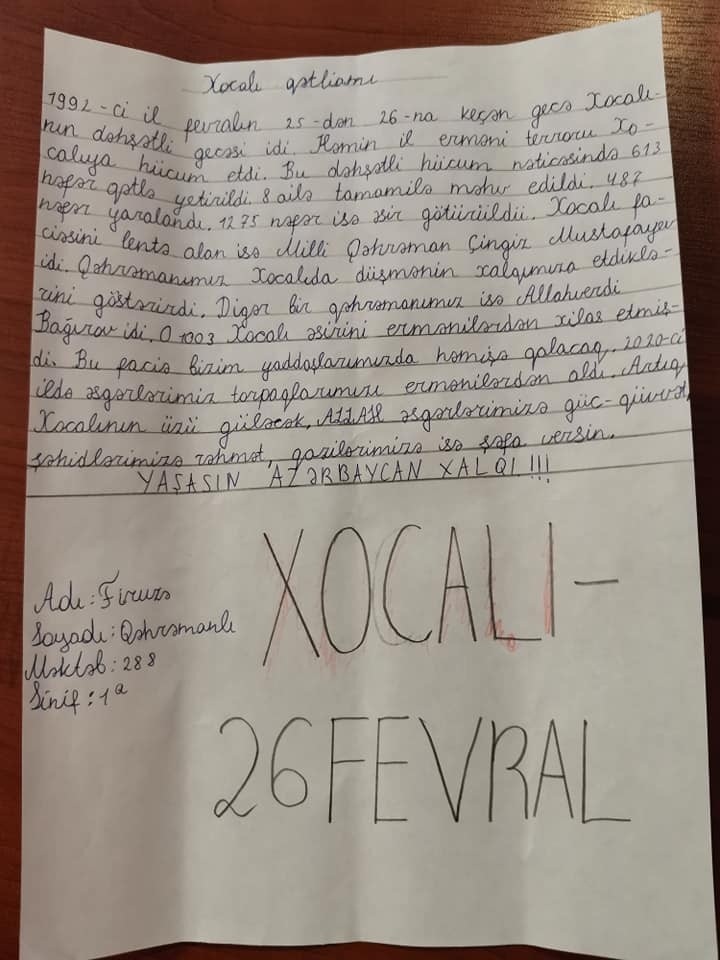 Xocalı qətliamı
1992-ci il fevralın 25-dən 26-na keçən gecə Xocalı-
nın dəhşətli gecəsi idi. Həmin il erməni terroru Xo-
calıya hücum etdi. Bu dəhşətli hücum nəticəsində 613
nəfər qətlə yetirildi. 8 ailə tamamilə məhv edildi. 487
nəfər yaralandı. 1275 nəfər isə əsir götürüldü. Xocalı fa-
ciəsini lentə alan isə Milli Qəhrəman Çingiz Mustafayev
idi. Qəhrəmanımız Xocalıda düşmənin xalqımıza etdiklə-
rini göstərirdi. Digər bir qəhrəmanımız isə Allahverdi
Bağırov idi. O 1003 Xocalı əsirini ermənilərdən xilas etmiş-
di. Bu faciə bizim yaddaşlarımızda həmişə qalacaq. 2020-ci
ildə əsgərlərimiz torpaqlarımızı ermənilərdən aldı. Artıq
Xocalının üzü güləcək. ALLAH əsgərlərimizə güc-qüvvət,
şəhidlərimizə rəhmət, qazilərimizə isə şəfa versin.
YAŞASIN AZƏRBAYCAN XALQI!!!
XOCALI-
26 FEVRAL
Adı: Firuzə
Soyadı: Qəhrəmanlı
Məktəb: 288
Sinif: 1ᵃ